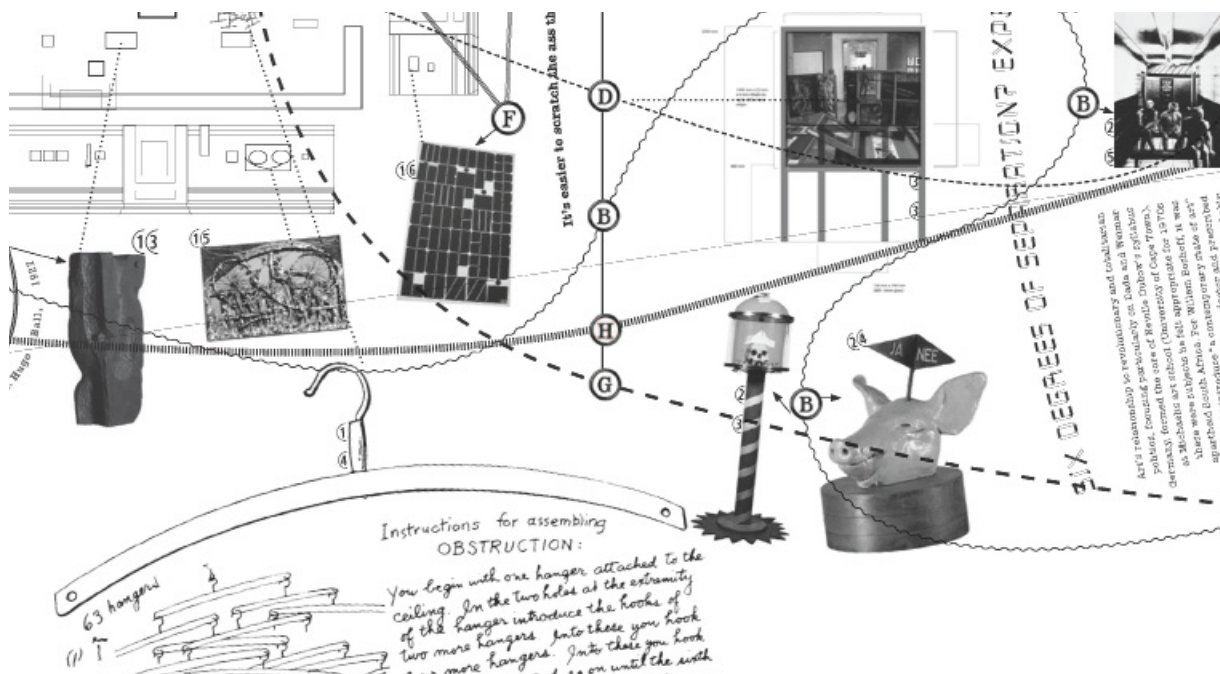 It's easier to scratch the ass th
D
F
B
B
16
13
15
H
G
B
24
JA NEE
2
3
1
4
2
5
3
3
1921
r Hugo Ball,
SIX DEGREES OF SEPARATION? EXPE
Art's relationship to revolutionary and totalitarian
politics, focusing particularly on Dada and Weimar
Germany, formed the core of Neville Dubow's syllabus
at Michaelis art school (University of Cape Town).
these were subjects he felt appropriate for 1970s
apartheid South Africa. For Willem Boshoff, it was
"a contemporary state of art"
and prescribed
Instructions for assembling
OBSTRUCTION:
You begin with one hanger attached to the
ceiling. In the two holes at the extremity
of the hanger introduce the hooks of
two more hangers. Into these you hook
more hangers. Into these you hook
so on until the sixth
63 hangers
(1)